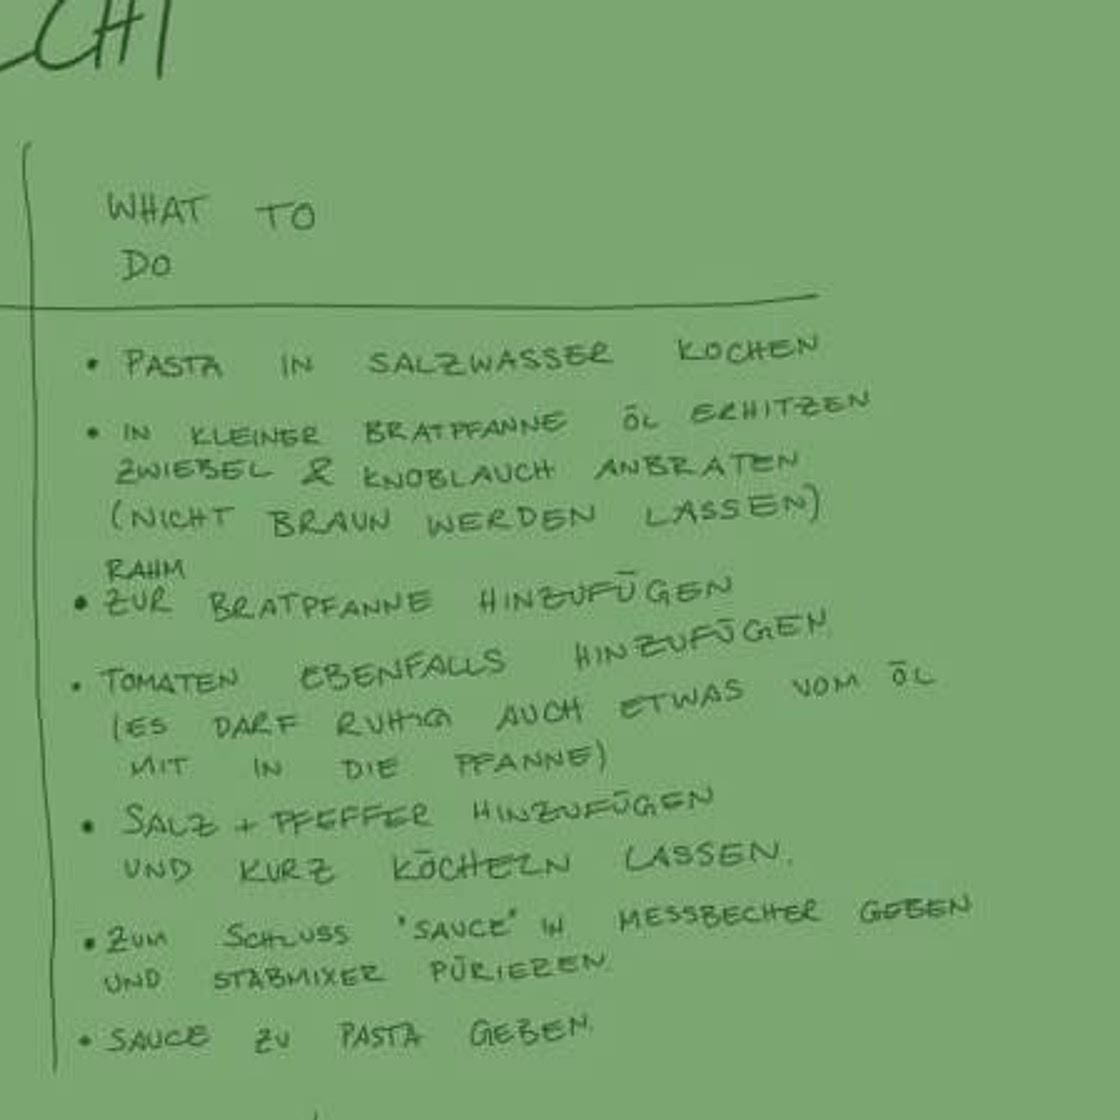 CHI
WHAT TO
DO
• PASTA IN SALZWASSER KOCHEN
• IN KLEINER BRATPFANNE ÖL ERHITZEN
ZWIEBEL & KNOBLAUCH ANBRATEN
(NICHT BRAUN WERDEN LASSEN)
RAHM
• ZUR BRATPFANNE HINZUFÜGEN
• TOMATEN EBENFALLS HINZUFÜGEN
(ES DARF RUHIG AUCH ETWAS VOM ÖL
MIT IN DIE PFANNE)
• SALZ + PFEFFER HINZUFÜGEN
UND KURZ KÖCHELN LASSEN.
• ZUM SCHLUSS "SAUCE" IN MESSBECHER GEBEN
UND STABMIXER PÜRIEREN.
• SAUCE ZU PASTA GEBEN.